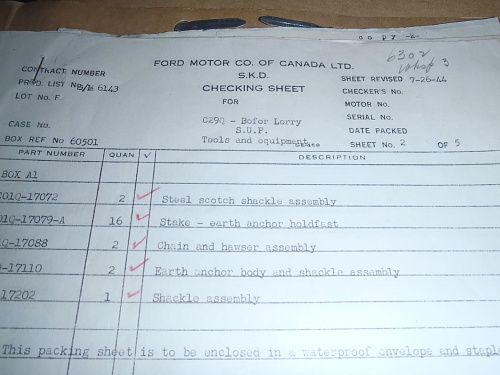 6302
3
FORD MOTOR CO. OF CANADA LTD.
S.K.D.
CHECKING SHEET
FOR
C29Q - Bofor Lorry
S.U.P.
Tools and equipment
CONTRACT NUMBER
PROD. LIST No 6143
LOT No. F
CASE No.
BOX REF No 60501
SHEET REVISED 7-26-44
CHECKER'S No.
MOTOR No.
SERIAL No.
DATE PACKED
SHEET No. 2 OF 5
PART NUMBER QUAN √ DESCRIPTION
BOX A1
01Q-17072 2 ✓ Steel scotch shackle assembly
01Q-17079-A 16 ✓ Stake - earth anchor holdfast
Q-17088 2 ✓ Chain and hawser assembly
-17110 2 ✓ Earth anchor body and shackle assembly
17202 1 ✓ Shackle assembly
This packing sheet is to be enclosed in a waterproof envelope and stapl